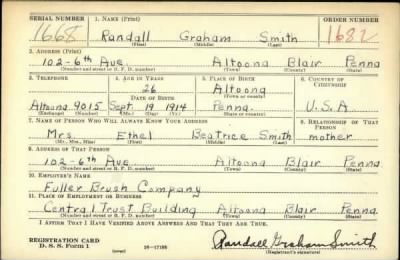 SERIAL NUMBER 1. NAME (Print) ORDER NUMBER
1668 Randall Graham Smith 1682
(First) (Middle) (Last)
2. ADDRESS (Print)
102-6th Ave. Altoona Blair Penna
(Number and street or R. F. D. number) (Town) (County) (State)
3. TELEPHONE 4. AGE IN YEARS 5. PLACE OF BIRTH 6. COUNTRY OF CITIZENSHIP
26 Altoona
DATE OF BIRTH (Town or county)
Altoona 9015 Sept. 19 1914 Penna. U.S.A
(Exchange) (Number) (Mo.) (Day) (Yr.) (State or country)
7. NAME OF PERSON WHO WILL ALWAYS KNOW YOUR ADDRESS 8. RELATIONSHIP OF THAT PERSON
Mrs. Ethel Beatrice Smith mother
(Mr., Mrs., Miss) (First) (Middle) (Last)
9. ADDRESS OF THAT PERSON
102-6th Ave. Altoona Blair Penna
(Number and street or R. F. D. number) (Town) (County) (State)
10. EMPLOYER'S NAME
Fuller Brush Company
11. PLACE OF EMPLOYMENT OR BUSINESS
Central Trust Building Altoona Blair Penna
(Number and street or R. F. D. number) (Town) (County) (State)
I AFFIRM THAT I HAVE VERIFIED ABOVE ANSWERS AND THAT THEY ARE TRUE.
REGISTRATION CARD
D. S. S. Form 1 (over) 16—17105 Randall Graham Smith
(Registrant's signature)